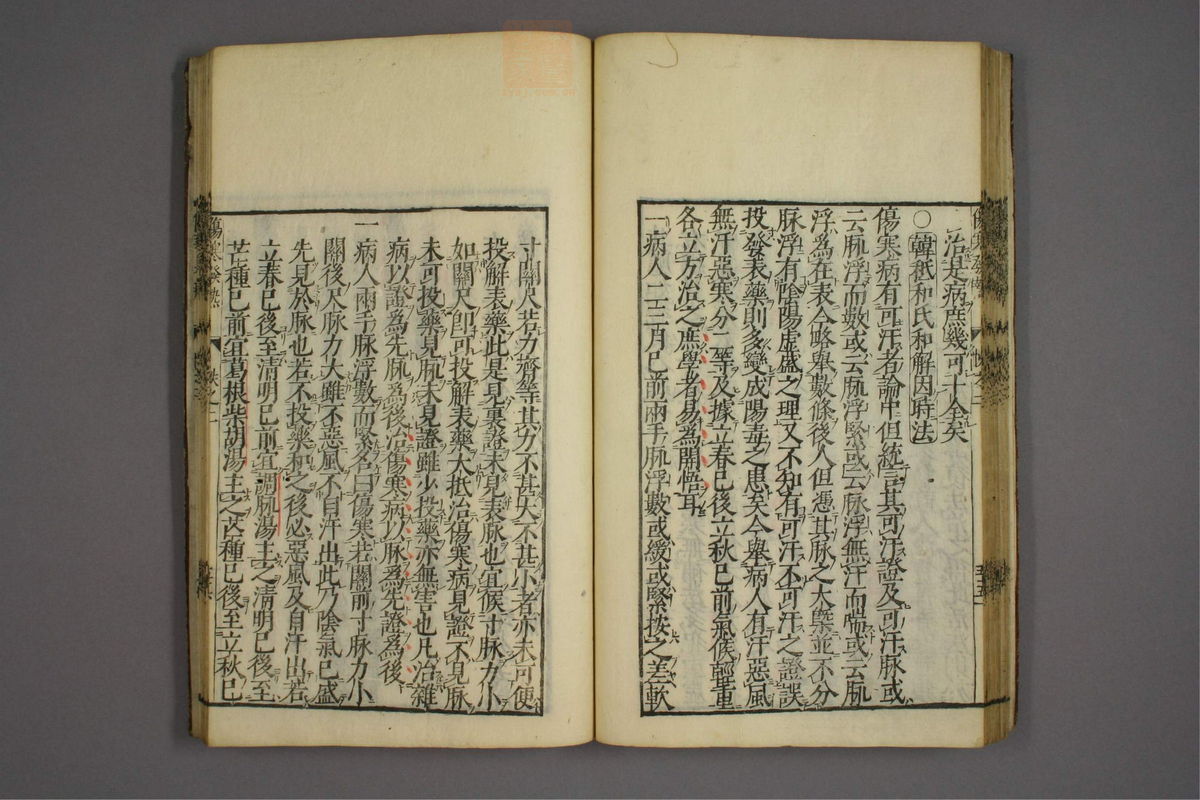 治是病庶幾可十全矣
○韓祗和氏和解因時法
傷寒病有可汗者論中但統言其可汗證及可汗脉或
云脉浮而數或云脉浮緊或云脉浮無汗而喘或云脉
浮為在表今略舉數條後人但憑其脉之大槩並不分
脉浮有陰陽虛盛之理又不知有可汗不可汗之證誤
投發表藥則多變成陽毒之患矣今舉病人有汗惡風
無汗惡寒分二等及據立春已後立秋已前氣候輕重
各立方治之庶學者易為開悟耳
一病人二三月已前兩手脉浮數或緩或緊按之差軟
寸關尺若力齊等其力不甚大不甚小者亦未可便
投解表藥此是見裏證未見表脉也宜候寸脉力小
如關尺卽可投解表藥大抵治傷寒病見證不見脉
未可投藥見脉未見證雖少投藥亦無害也凡治雜
病以證為先脉為後治傷寒病以脉為先證為後
一病人兩手脉浮數而緊名曰傷寒若關前寸脉力小
關後尺脉力大雖不惡風不自汗出此乃陰氣已盛
先見於脉也若不投藥和之後必惡風及自汗出若
立春已後至清明已前宜調脉湯主之清明已後至
芒種已前宜葛根柴胡湯主之芒種已後至立秋已